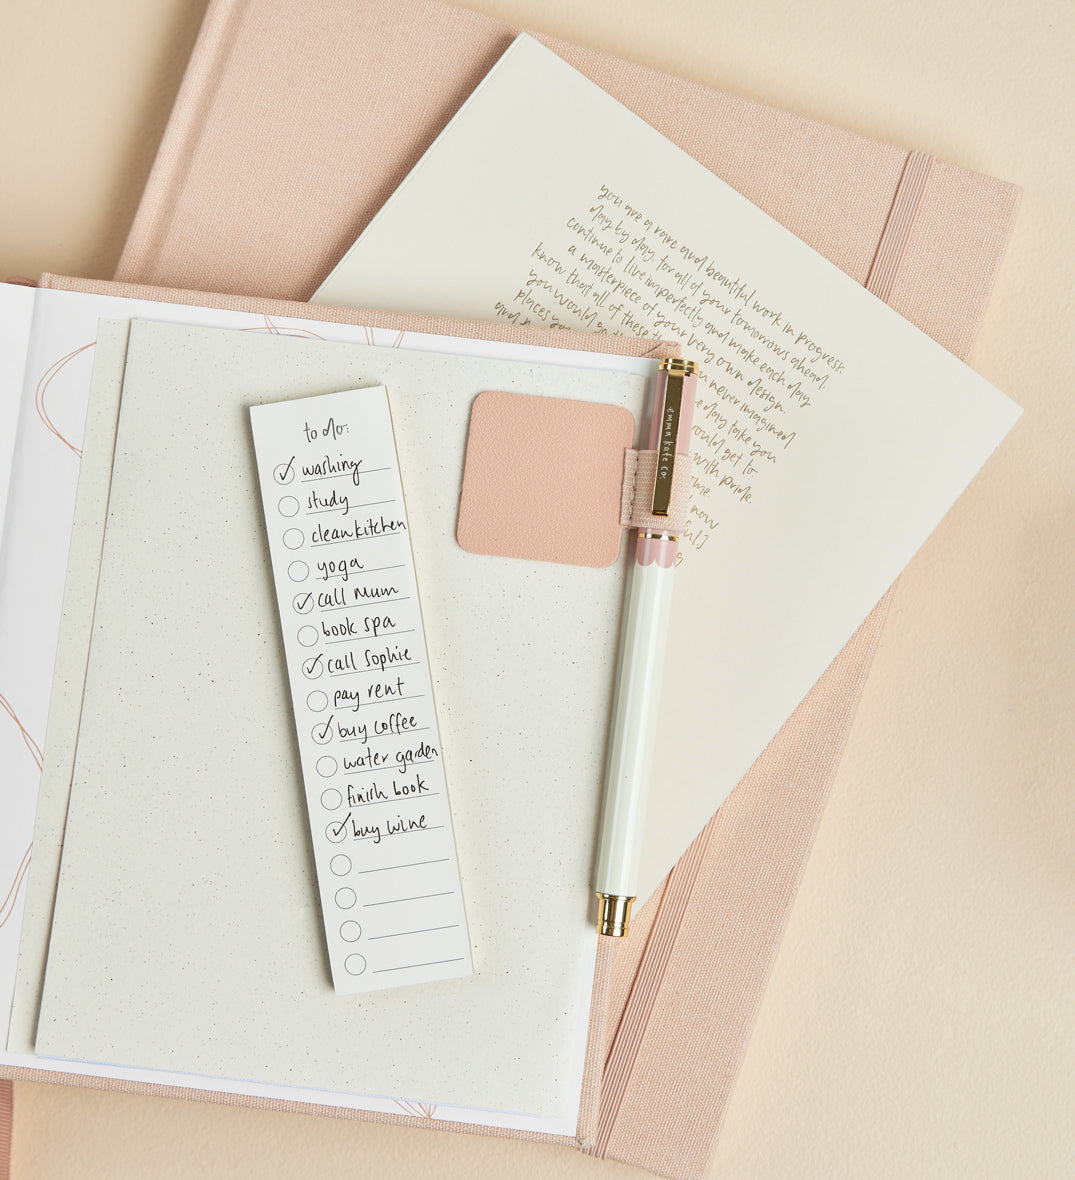 to do:
washing
study
clean kitchen
yoga
call Mum
book spa
call Sophie
pay rent
buy coffee
water garden
finish book
buy wine
you are a rare and beautiful work in progress
day by day. for all of your tomorrows ahead
continue to live imperfectly and make each day
a masterpiece of your very own design.
know that all of these th u never imagined
you would go e day take you
places you would get to
and s with pride.
ome
now
ful]
s
emma kate co.